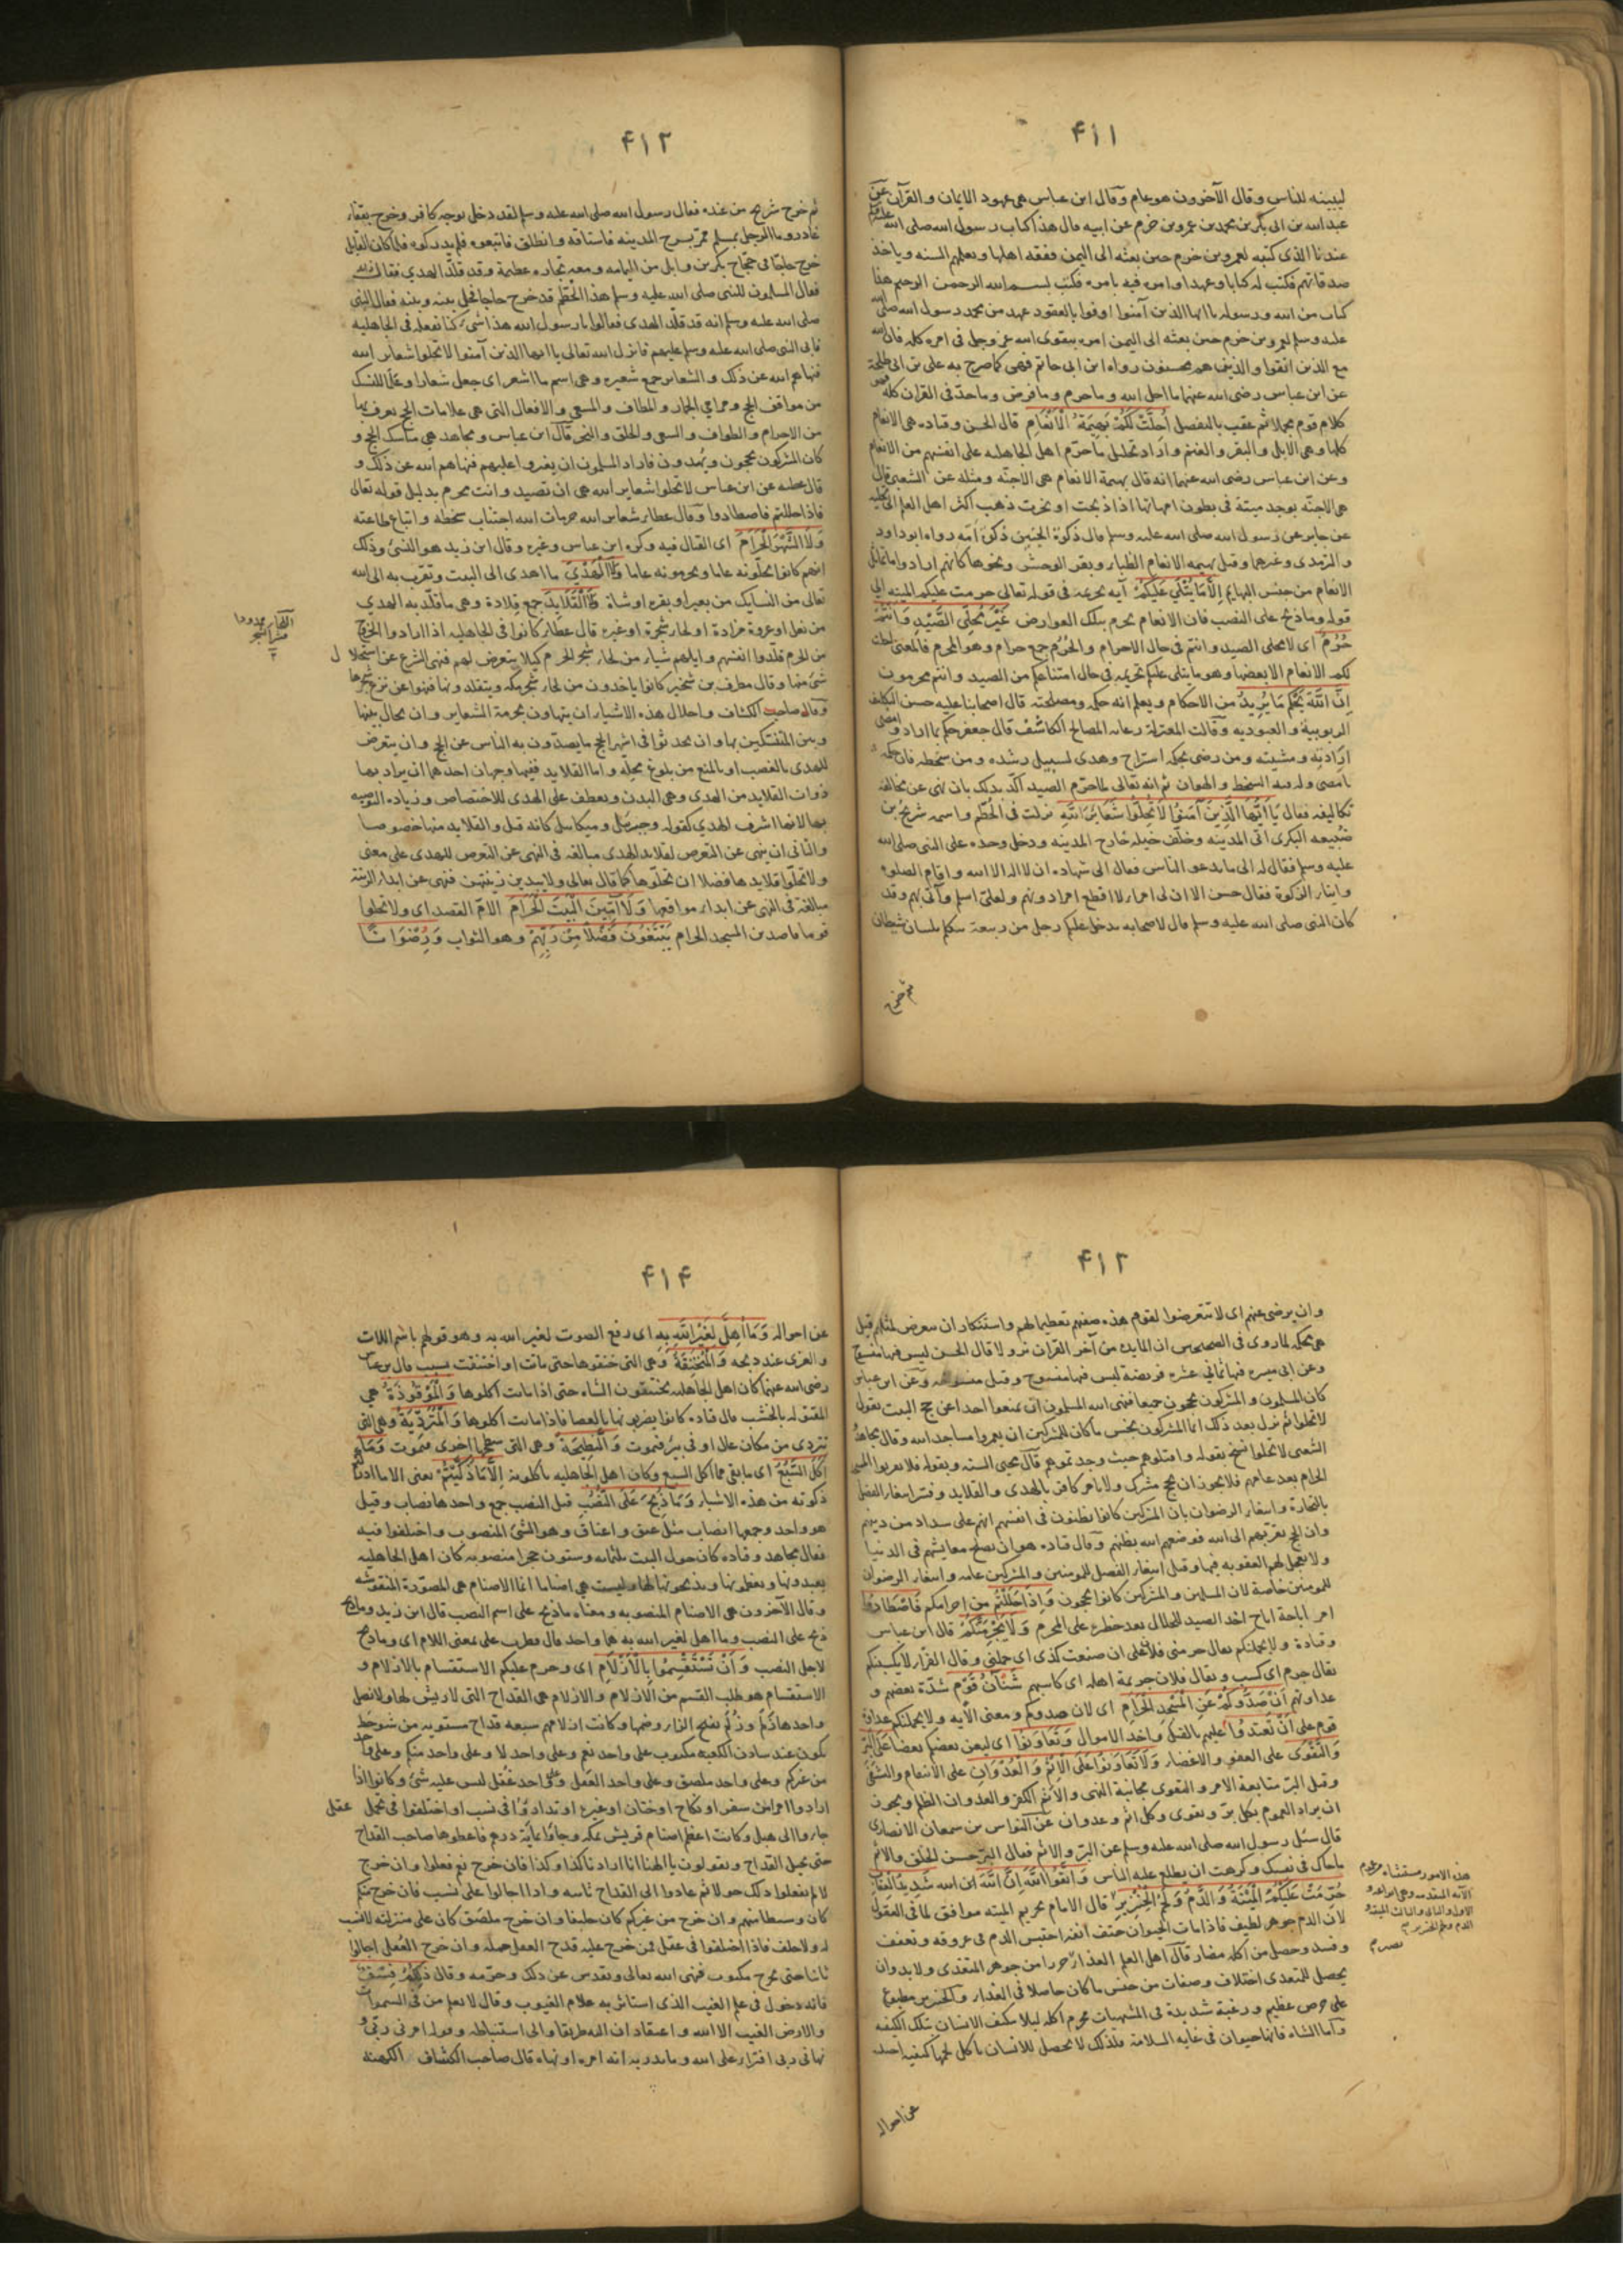 ۴۱۱
ليبينه للناس وقال الآخرون هو عام وقال ابن عباس هي عهود الايمان والقرآن عن
عبد الله بن ابي بكر بن محمد بن عمرو بن حزم عن ابيه قال هذا كتاب رسول الله صلى الله عليه وسلم
عندنا الذي كتبه لعمرو بن حزم حين بعثه الى اليمن يفقه اهلها ويعلمهم السنه وياخذ
صدقاتهم فكتب له كتابا وعهدا وامره فيه بامره فكتب بسم الله الرحمن الرحيم هذا
كتاب من الله ورسوله يا ايها الذين آمنوا اوفوا بالعقود عهد من محمد رسول الله صلى الله
عليه وسلم لعمرو بن حزم حين بعثه الى اليمن امره بتقوى الله عز وجل في امره كله فان الله
مع الذين اتقوا والذين هم محسنون رواه ابن ابي حاتم فهي كما صرح به علي بن ابي طلحة
عن ابن عباس رضي الله عنهما ما احل الله وما حرم وما فرض وما حد في القران كله
كلام قوم مجملا ثم عقب بالتفصيل أُحِلَّتْ لَكُمْ بَهِيمَةُ الْأَنْعَامِ قال الحسن وقتاده هي الانعام
كلها وهي الابل والبقر والغنم واراد تحليل ما حرم اهل الجاهليه على انفسهم من الانعام
وعن ابن عباس رضي الله عنهما انه قال بهيمة الانعام هي الاجنه ومثله عن الشعبي قال
هي الاجنه يوجد ميتة في بطون امهاتها اذا ذبحت او نحرت ذهب اكثر اهل العلم الى تحليله
عن جابر عن رسول الله صلى الله عليه وسلم قال ذكوة الجنين ذكوة امه رواه ابو داود
والترمذي وغيرهما وقيل بهيمه الانعام الظباء وبقر الوحش ونحوها كانهم ارادوا ما يماثل
الانعام من جنس البهايم إِلَّا مَا يُتْلَى عَلَيْكُمْ آيه تحريمه في قوله تعالى حرمت عليكم الميته الى
قوله وما ذبح على النصب فان الانعام يحرم بتلك العوارض غَيْرَ مُحِلِّي الصَّيْدِ وَأَنْتُمْ
حُرُمٌ اى لا محلى الصيد وانتم في حال الاحرام والحُرُم جمع حرام وهو المحرم فالمعنى احلت
لكم الانعام الا بعضها وهو ما يتلى عليكم تحريمه في حال امتناعكم من الصيد وانتم محرمون
إِنَّ اللَّهَ يَحْكُمُ مَا يُرِيدُ من الاحكام ويعلم انه حكمه ومصلحته قال اصحابنا عليه حسن التكليف
الربوبية والعبوديه وقالت المعتزلة رعايه المصالح الكاشف قال جعفر حكم بما اراد وامضى
ارادته ومشيته ومن رضي بحكمه استراح وهدى لسبيل رشده ومن سخطه فان حكمه
ماضي وله فيه السخط والهوان ثم انه تعالى لما حرم الصيد اكد بذلك بان نهى عن مخالفة
تكاليفه فقال يَا أَيُّهَا الَّذِينَ آمَنُوا لَا تُحِلُّوا شَعَائِرَ اللَّهِ نزلت في الحُطَم واسمه شريح بن
ضبيعه البكرى اتى المدينه وخلف خيله خارج المدينه ودخل وحده على النبي صلى الله
عليه وسلم فقال له الى ما يدعو الناس فقال الى شهاده ان لا اله الا الله واقام الصلوه
وايتاء الزكوة فقال حسن الا ان لى امراء لا اقطع امرا دونهم ولعلى اسلم وآتى بهم وقد
كان النبي صلى الله عليه وسلم قال لاصحابه يدخل عليكم رجل من ربيعه يتكلم بلسان شيطان
ثم خرج
۴۱۲
ثم خرج شريح من عنده فقال رسول الله صلى الله عليه وسلم لقد دخل بوجه كافر وخرج بقفاء
غادر وما الرجل بمسلم فمر بسرح المدينه فاستاقه وانطلق فاتبعوه فلم يدركوه فلما كان القابل
خرج حاجا في حجاج بكر بن وايل من اليمامه ومعه تجاره عظيمة وقد قلد الهدي
فقال المسلمون للنبي صلى الله عليه وسلم هذا الحُطَم قد خرج حاجا فخل بيننا وبينه فقال النبي
صلى الله عليه وسلم انه قد قلد الهدى فقالوا يا رسول الله هذا شيء كنا نفعله في الجاهليه
فابى النبي صلى الله عليه وسلم عليهم فانزل الله تعالى يا ايها الذين آمنوا لا تحلوا شعائر الله
فنهاهم الله عن ذلك والشعاير جمع شعيره وهي اسم ما اشعر اى جعل شعارا وعلما للنسك
من مواقف الحج ومرامي الجمار والمطاف والمسعى والافعال التي هي علامات الحج يعرف بها
من الاحرام والطواف والسعي والحلق والنحر قال ابن عباس ومجاهد هي مناسك الحج و
كان المشركون يحجون ويهدون فاراد المسلمون ان يغيروا عليهم فنهاهم الله عن ذلك و
قال عطيه عن ابن عباس لا تحلوا شعاير الله هي ان تصيد وانت محرم بدليل قوله تعالى
فاذا حللتم فاصطادوا وقال عطاء شعاير الله حرمات الله اجتناب سخطه واتباع طاعته
وَلَا الشَّهْرَ الْحَرَامَ اى القتال فيه وكره ابن عباس وغيره وقال ابن زيد هو النسىء وذلك
انهم كانوا يحلونه عاما ويحرمونه عاما وَلَا الْهَدْيَ ما اهدى الى البيت وتقرب به الى الله
تعالى من النسايك من بعير او بقره او شاة وَلَا الْقَلَايِدَ جمع قلادة وهي ما قلد به الهدي
من نعل او عروة مزادة او لحاء شجرة او غيره قال عطاء كانوا في الجاهليه اذا ارادوا الخروج
من الحرم قلدوا انفسهم وابلهم شيا من لحاء شجر الحرم كيلا يتعرض لهم فنهى الشرع عن استحلال
شيء منها وقال مطرف بن شخير كانوا ياخذون من لحاء شجر مكه ويتقلدونها فنهوا عن نزع شجرها
وقال صاحب الكشاف واحلال هذه الاشياء ان يتهاون بحرمة الشعاير وان يحال بينها
وبين المتنسكين بها وان يحدثوا في اشهر الحج ما يصدون به الناس عن الحج وان يتعرض
للهدى بالغصب او بالمنع من بلوغ محله واما القلايد ففيها وجهان احدهما ان يراد بها
ذوات القلايد من الهدى وهي البدن ويعطف على الهدى للاختصاص وزياده التوصيه
بها لانها اشرف الهدي كقوله وجبريل وميكايل كانه قيل والقلايد منها خصوصا
والثاني ان ينهى عن التعرض لقلايد الهدى مبالغه في النهى عن التعرض للهدى على معنى
ولا تحلوا قلايدها فضلا ان تحلوها كما قال تعالى ولا يبدين زينتهن فنهى عن ابداء الزينة
مبالغة في النهى عن ابداء مواقعها وَلَا آمِّينَ الْبَيْتَ الْحَرَامَ الامّ القصد اى ولا تحلوا
قوما قاصدين المسجد الحرام يَبْتَغُونَ فَضْلًا مِنْ رَبِّهِمْ وهو الثواب وَرِضْوَانًا
اللحاء ممدودا
قشر الشجر
۴۱۳
وان يرضى عنهم اى لا تتعرضوا لقوم هذه صفتهم تعظيما لهم واستنكار ان يتعرض لمثلهم قيل
هي محكمه لما روى في الصحيحين ان المايده من آخر القران نزولا قال الحسن ليس فيها منسوخ
وعن ابي ميسره فيها ثماني عشره فريضة ليس فيها منسوخ وقيل منسوخه وعن ابن عباس
كان المسلمون والمشركون يحجون جميعا فنهى الله المسلمون ان يمنعوا احدا عن حج البيت بقوله
لا تحلوا ثم نزل بعد ذلك انما المشركون نجس ما كان للمشركين ان يعمروا مساجد الله وقال مجاهد
الشعبي لا تحلوا نسخ بقوله واقتلوهم حيث وجدتموهم قال محيى السنه وبقوله فلا يقربوا المسجد
الحرام بعد عامهم فلا يجوز ان يحج مشرك ولا يامن كافر بالهدى والقلايد وفسر ابتغاء الفضل
بالتجارة وابتغاء الرضوان بان المشركين كانوا يظنون في انفسهم انهم على سداد من دينهم
وان الحج يقربهم الى الله فوصفهم الله بظنهم وقال قتاده هو ان يصلح معايشهم في الدنيا
ولا يعجل لهم العقوبه فيها وقيل ابتغاء الفضل للمومنين والمشركين عامه وابتغاء الرضوان
للمومنين خاصة لان المسلمين والمشركين كانوا يحجون وَإِذَا حَلَلْتُمْ من احرامكم فَاصْطَادُوا
امر اباحة اباح اخذ الصيد للحلال بعد حظره على المحرم وَلَا يَجْرِمَنَّكُمْ قال ابن عباس
وقتادة ولا يحملنكم يقال جرمني فلان على ان صنعت كذى اى حملني وقال الفراء لا يكسبنكم
يقال جرم اى كسب ويقال فلان جريمة اهله اى كاسبهم شَنَآنُ قَوْمٍ شدّة بغضهم و
عداوتهم أَنْ صَدُّوكُمْ عَنِ الْمَسْجِدِ الْحَرَامِ اى لان صدوكم ومعنى الآيه ولا يحملنكم عداوة
قوم على أَنْ تَعْتَدُوا عليهم بالقتل واخذ الاموال وَتَعَاوَنُوا اى ليعن بعضكم بعضا عَلَى الْبِرِّ
وَالتَّقْوَى على العفو والاغضاء وَلَا تَعَاوَنُوا عَلَى الْإِثْمِ وَالْعُدْوَانِ على الانتقام والتشفى
وقيل البر متابعة الامر والتقوى مجانبة النهى والاثم الكفر والعدوان الظلم ويجوز
ان يراد العموم بكل بر وتقوى وكل اثم وعدوان عن النواس بن سمعان الانصارى
قال سئل رسول الله صلى الله عليه وسلم عن البر والاثم فقال البر حسن الخلق والاثم
ما حاك في نفسك وكرهت ان يطلع عليه الناس وَاتَّقُوا اللَّهَ إِنَّ اللَّهَ شَدِيدُ الْعِقَابِ
حُرِّمَتْ عَلَيْكُمُ الْمَيْتَةُ وَالدَّمُ وَلَحْمُ الْخِنْزِيرِ قال الامام تحريم الميته موافق لما في العقول
لان الدم جوهر لطيف فاذا مات الحيوان حتف انفه احتبس الدم في عروقه وتعفن
وفسد وحصل من اكله مضار قال اهل العلم الغذاء جزءا من جوهر المتغذى ولا بد وان
يحصل للمتغدى اختلاف وصفات من جنس ما كان حاصلا في الغذاء والخنزير مطبوع
على حرص عظيم ورغبة شديدة في المشهيات محرم اكله ليلا يتكيف الانسان بتلك الكيفيه
واما الشاه فانها حيوان في غايه السلامة فلذلك لا يحصل للانسان باكل لحمها كيفيه
عن احواله
هذه الامور مستثناه
الآية المتقدمه وهي احد عشر
الاول والثانى والثالث الميتة
الدم ولحم الخنزير
۴۱۴
عن احواله وَمَا أُهِلَّ لِغَيْرِ اللَّهِ بِهِ اى رفع الصوت لغير الله به وهو قولهم باسم اللات
والعزى عند ذبحه وَالْمُنْخَنِقَةُ وهي التي خنقوها حتى ماتت او اختنقت بسبب قال ابن عباس
رضي الله عنهما كان اهل الجاهليه يخنقون الشاة حتى اذا ماتت اكلوها وَالْمَوْقُوذَةُ هي
المقتوله بالخشب قال قتاده كانوا يضربونها بالعصا فاذا ماتت اكلوها وَالْمُتَرَدِّيَةُ وهي التي
تتردى من مكان عال او في بئر فتموت وَالنَّطِيحَةُ وهي التي ينطحها اخرى فتموت وَمَا
أَكَلَ السَّبُعُ اى ما بقى مما اكل السبع وكان اهل الجاهليه ياكلونه إِلَّا مَا ذَكَّيْتُمْ يعنى الا ما ادركتم
ذكوته من هذه الاشياء وَمَا ذُبِحَ عَلَى النُّصُبِ قيل النصب جمع واحدها نصاب وقيل
هو واحد وجمعها انصاب مثل عنق واعناق وهو الشئ المنصوب واختلفوا فيه
فقال مجاهد وقتاده كان حول البيت ثلثمائه وستون حجرا منصوبه كان اهل الجاهليه
يعبدونها ويعظمونها ويذبحون لها وليست هي اصناما انما الاصنام هي المصورة المنقوشه
وقال الآخرون هي الاصنام المنصوبه ومعناه ما ذبح على اسم النصب قال ابن زيد وما
ذبح على النصب وما اهل لغير الله به هما واحد قال قطرب على بمعنى اللام اى وما ذبح
لاجل النصب وَأَنْ تَسْتَقْسِمُوا بِالْأَزْلَامِ اى وحرم عليكم الاستقسام بالازلام و
الاستقسام هو طلب القسم من الازلام والازلام هي القداح التي لا ريش لها ولا نصل
واحدها زَلَم وزُلَم بفتح الزاء وضمها وكانت ازلامهم سبعه قداح مستويه من شوحط
يكون عند سادن الكعبه مكتوب على واحد نعم وعلى واحد لا وعلى واحد منكم وعلى واحد
من غيركم وعلى واحد ملصق وعلى واحد العقل وواحد غفل ليس عليه شئ وكانوا اذا
ارادوا امرا من سفر او نكاح او ختان او غيره او تدارؤا في نسب او اختلفوا في تحمل عقل
جاءوا الى هبل وكانت اعظم اصنام قريش بمكه وجاؤا بماية درهم فاعطوها صاحب القداح
حتى يجيل القداح ويقولون يا الهنا انا اردنا كذا وكذا فان خرج نعم فعلوا وان خرج
لا لم يفعلوا ذلك حولا ثم عادوا الى القداح ثانيه واذا اجالوا على نسب فان خرج منكم
كان وسيطا منهم وان خرج من غيركم كان حليفا وان خرج ملصق كان على منزلته لا نسب
له ولا حلف فاذا اختلفوا في عقل فمن خرج عليه قدح العقل حمله وان خرج الغفل اجالوا
ثانيا حتى يخرج مكتوب فنهى الله تعالى وتقدس عن ذلك وحرمه وقال ذَلِكُمْ فِسْقٌ
فانه دخول في علم الغيب الذى استاثر به علام الغيوب وقال لا يعلم من في السموات
والارض الغيب الا الله واعتقاد ان اليه طريقا والى استنباطه وقوله امرني ربي و
نهاني ربي افتراء على الله وما يدريه انه امره او نهاه قال صاحب الكشاف الكهنه